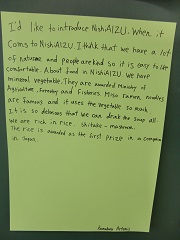 I'd like to introduce NishiAIZU. When it
Coms to NishiAIZU. I think that we have a lot
of nature and people are kind so it is easy to be
comfortable. About food in NishiAIZU. We have
mineral vegetable. They are awarded Ministry of
Agriculture, Forestry and Fisheries. Miso ramen noodles
are famous and it uses the vegetable so much.
It is so delicious that we can drink the soup all.
We are rich in rice, shitake-mushroom.
The rice is awarded as the first prize in a competion
in Japan.